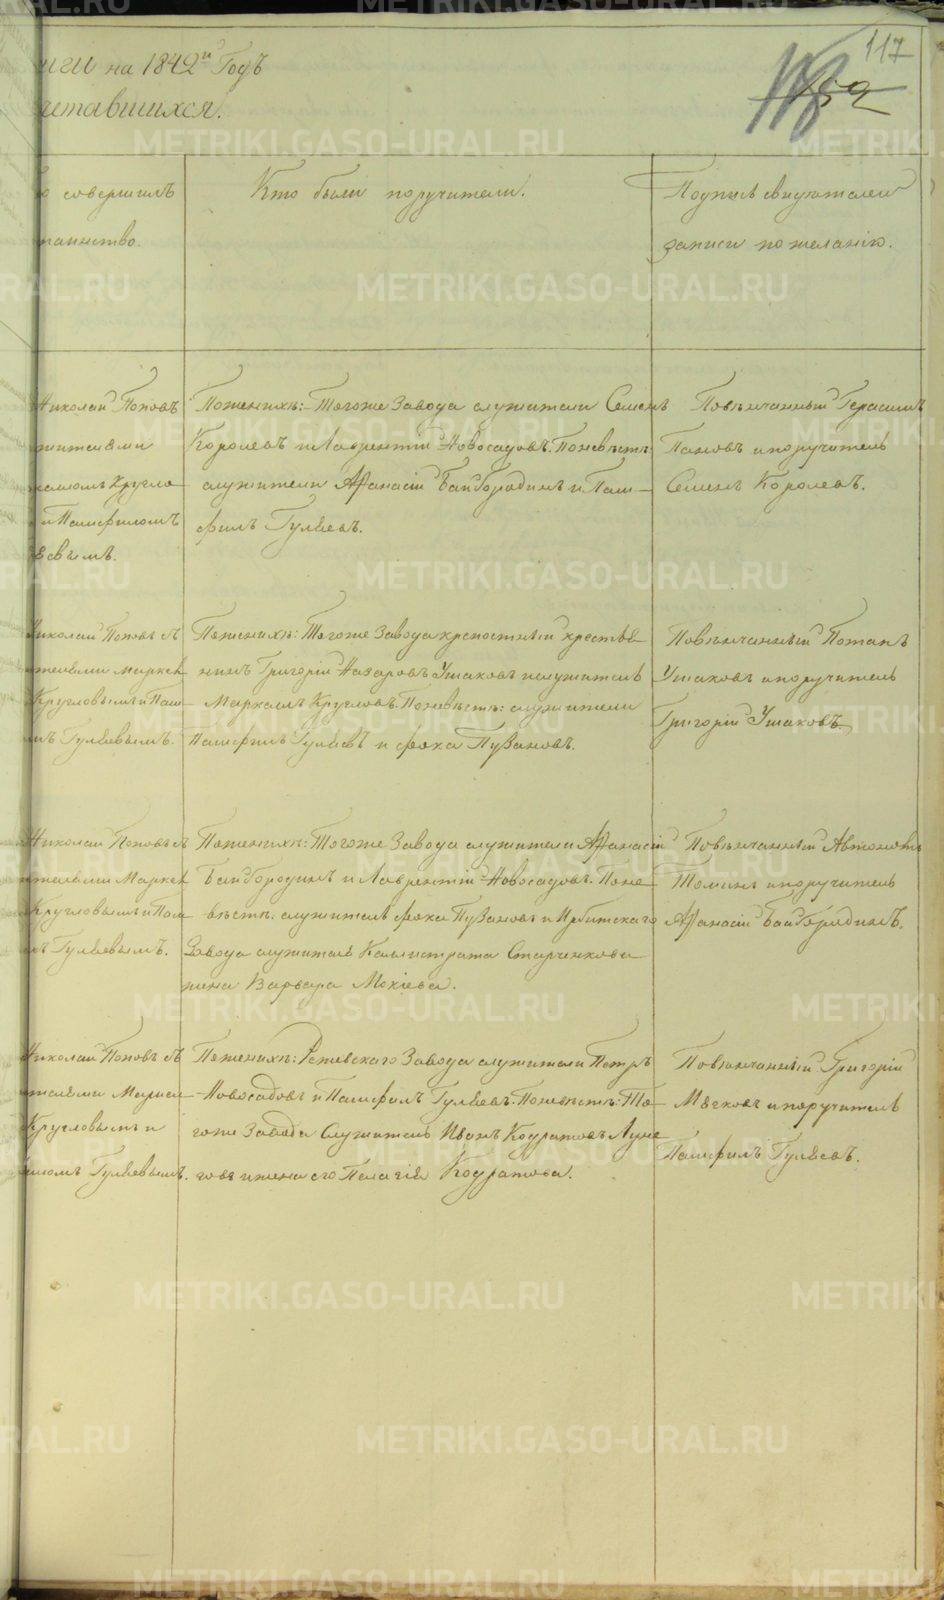 117
152
иги на 1842й Годъ
четавшихся.
то совершилъ
таинство.
Кто были поручители.
Подпись свидѣтелей
записи по желанію.
Николай Поповъ
чителями
Кругло
и Памфиломъ
евымъ.
Поженихѣ: Тогоже Завода служители Семенъ
Королевъ и Лаврентій Новосадовъ. Поневѣстѣ
служители Афанасій Байбородинъ и Пам-
филъ Гуляевъ.
Повѣнчанный Герасимъ
Пановъ и поручитель
Семенъ Королевъ.
Николай Поповъ съ
ителями Маркел
Кругловымъ и Пам
мъ Гуляевымъ.
Поженихѣ: Тогоже Завода крепостный крестья
нинъ Григорій Назаровъ Ушаковъ и служитель
Кругловъ. Поневѣстѣ: служители
Памфилъ Гуляевъ и Фока Пузановъ.
Повѣнчанный Потапъ
Ушаковъ и поручитель
Григорій Ушаковъ.
Николай Поповъ съ
ителями Маркел
Кругловымъ и Пам
мъ Гуляевымъ.
Поженихѣ: Тогоже Завода служители Афанасій
Байбородинъ и Лаврентій Новосадовъ. Поне
вѣстѣ: служитель Фока Пузановъ и Ирбитскаго
Завода служителя Каллистрата Старченкова
жена Варвара Мокіева.
Повѣнчанный Автономъ
Томинъ и поручитель
Афанасій Байбородинъ.
Николай Поповъ съ
ителями
Кругловымъ и
иломъ Гуляевымъ.
Поженихѣ: Режевскаго Завода служители Петръ
Новосадовъ и Памфилъ Гуляевъ. Поневѣстѣ: То
гоже Завода Служитель Иванъ Кодратовъ Луне
говъ и жена его Пелагія Кодратова.
Повѣнчанный Григорій
Мяековъ и поручитель
Памфилъ Гуляевъ.
METRIKI.GASO-URAL.RU